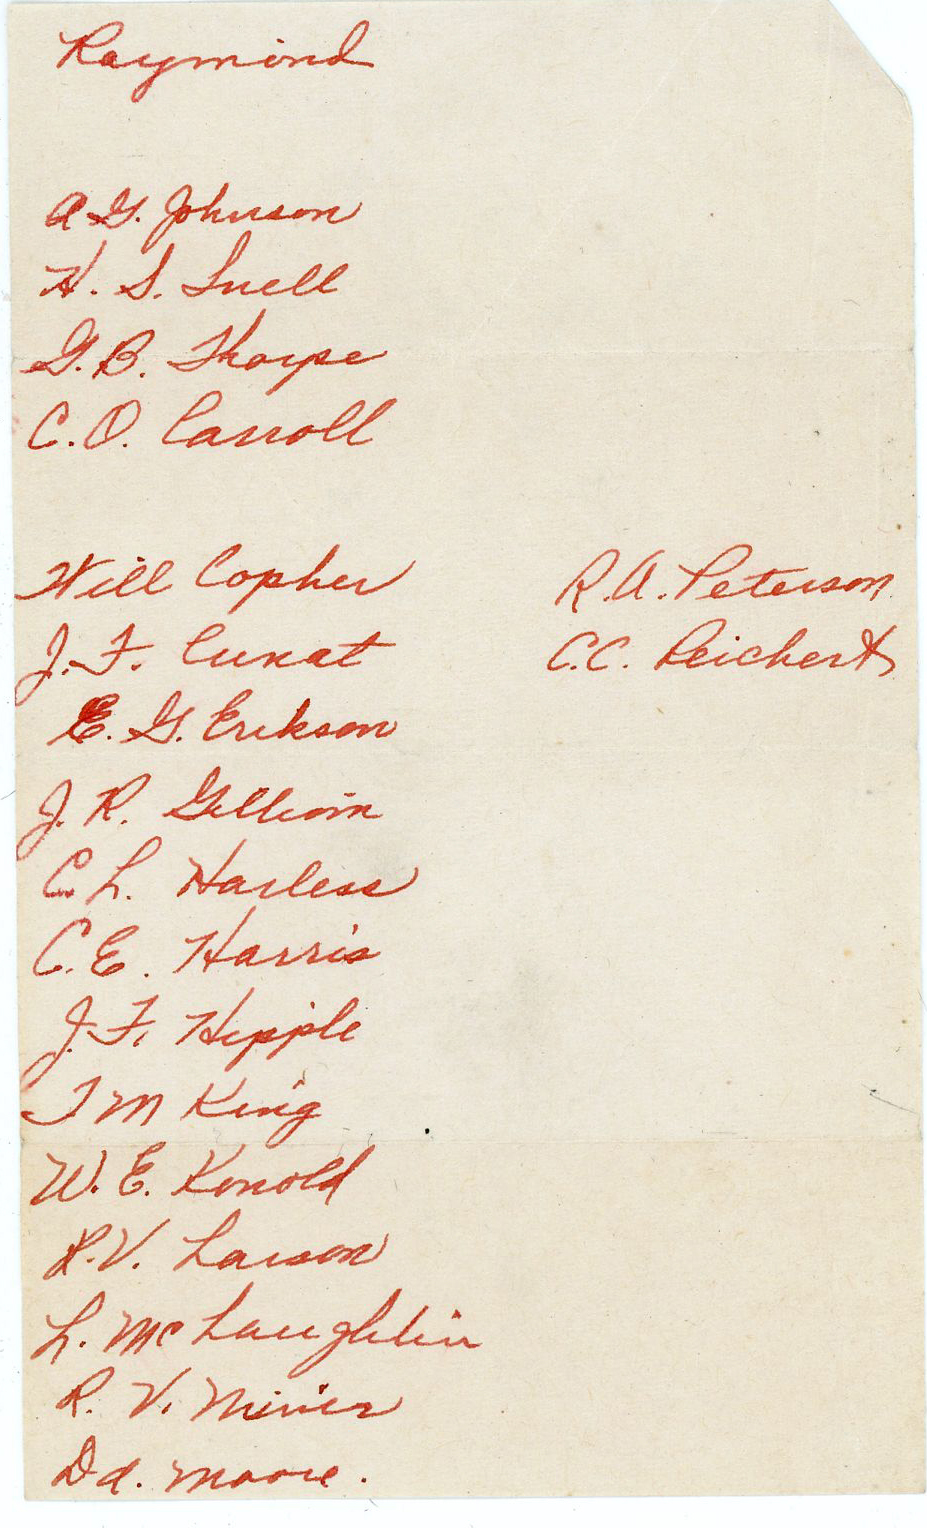 Raymond
A G. Johnson
H. S. Snell
G. B. Thorpe
C. O. Carroll
Will Copher
J. F. Cunat
E. G. Erikson
J. R. Gilliom
C. L. Harless
C. E. Harris
J. F. Hepple
T M King
W. E. Konold
R. V. Larson
L. McLaughlin
R. V. Minier
D d. Moore.
R. A. Peterson
C.C. Reichert